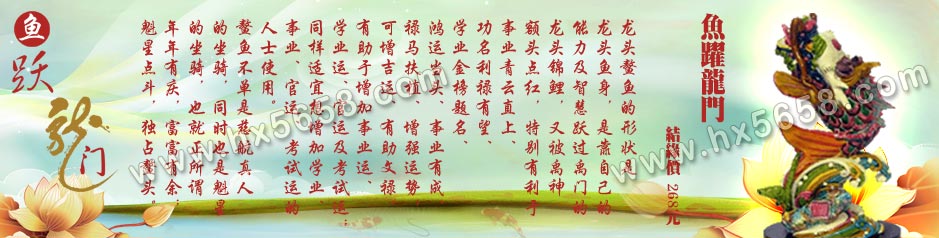 魚躍龍門
結緣價 268元
龙头鳌鱼的形状是
龙头鱼身，是靠自己的
能力及智慧跃过禹门的
龙头锦鲤，又被禹神
额头点红，特别有利于
事业青云直上、
功名利禄有望、
学业金榜题名、
鸿运当头、事业有成、
禄马扶植，增强运势，
可增吉运，有助文禄，
有助于增加事业运、
学业运、官运及考试运；
同样适宜想增加学业、
事业、官运、考试运的
人士使用。
鳌鱼不单是慈航真人
的坐骑，同时也是魁星
的坐骑，也就正所谓
年年有庆，富富有余；
魁星点斗，独占鳌头。
鱼跃龙门
www.hx5658.com
www.hx5658.com
www.hx5658.com